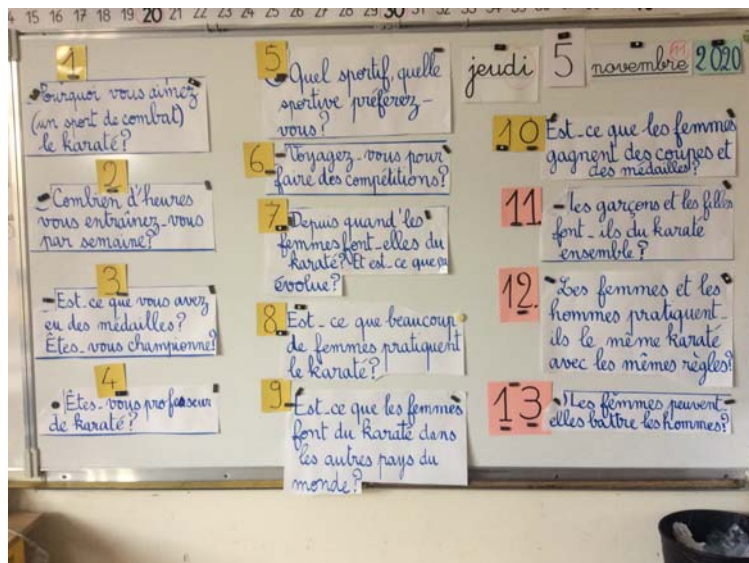 15 16 17 18 19 20 21 22 23 24 25 26 27 28 29 30 31 32 33
1
_Pourquoi vous aimez
(un sport de combat)
le karaté?
2
_Combien d'heures
vous entraînez-vous
par semaine?
3
-Est-ce que vous avez
eu des médailles?
Êtes-vous championne?
4
Êtes-vous professeur
de karaté?
5
Quel sportif, quelle
sportive préférez-
vous?
6
-Voyagez-vous pour
faire des compétitions?
7
Depuis quand les
femmes font-elles du
karaté? Et est-ce que ça
évolue?
8
Est-ce que beaucoup
de femmes pratiquent
le karaté?
9
Est-ce que les femmes
font du karaté dans
les autres pays du
monde?
jeudi 5 novembre 11 2020
10
Est-ce que les femmes
gagnent des coupes et
des médailles?
11.
-les garçons et les filles
font-ils du karaté
ensemble?
12.
-Les femmes et les
hommes pratiquent-
ils le même karaté
avec les mêmes règles?
13
-Les femmes peuvent-
elles battre les hommes?